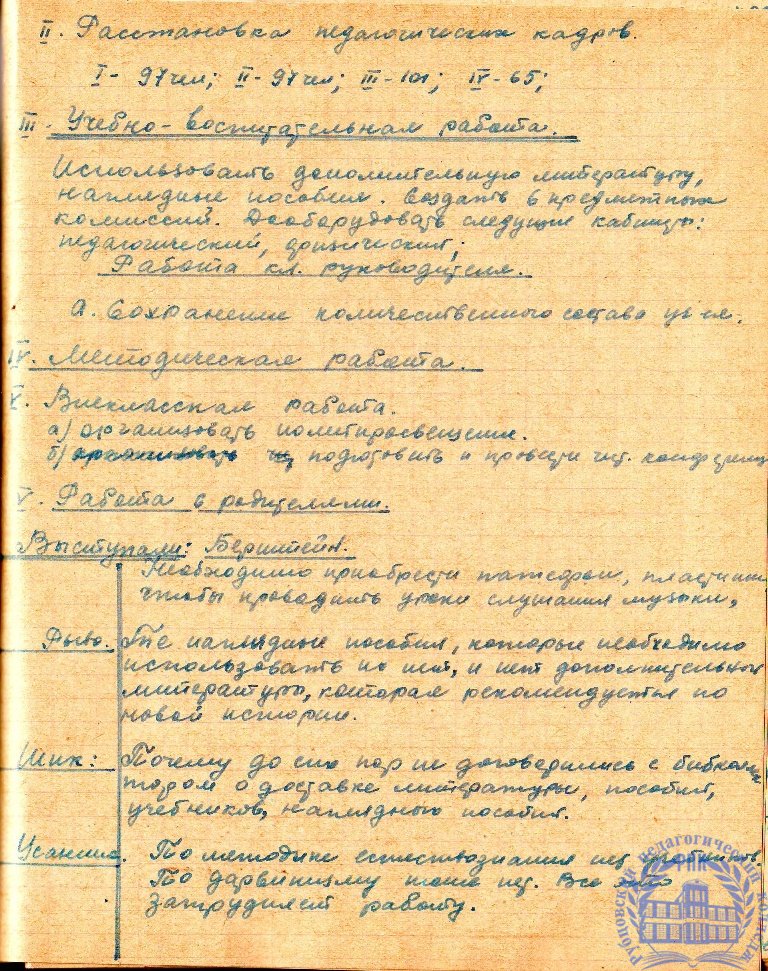 II. Расстановка педагогических кадров.
I - 97 чел; II - 97 чел; III - 101; IV - 65;
III. Учебно-воспитательная работа.
Использовать дополнительную литературу,
наглядные пособия. Создать 6 предметных
комиссий. Дооборудовать следущие кабинеты:
педагогический, физический;
Работа кл. руководителя.
а. Сохранение количественного состава уч-ся.
IV. Методическая работа.
V. Внеклассная работа.
а) организовать политпросвещение.
б) организовать подготовить и провести чит. конференц
V. Работа с родителями.
Выступали: Бернштейн.
Необходимо приобрести патефон, пластинки
чтобы проводить уроки слушания музыки,
Те наглядные пособия, которые необходимо
использовать их нет, и нет дополнительной
литературы, которая рекомендуется по
новой истории.
Шик: Почему до сих пор не договорились с
тором о доставке литературы, пособий,
учебников, наглядных пособий.
По методике естествознания нет учебников.
По дарвинизму тоже нет. Все это
затрудняет работу.
Рубцовский педагогический колледж
РПК